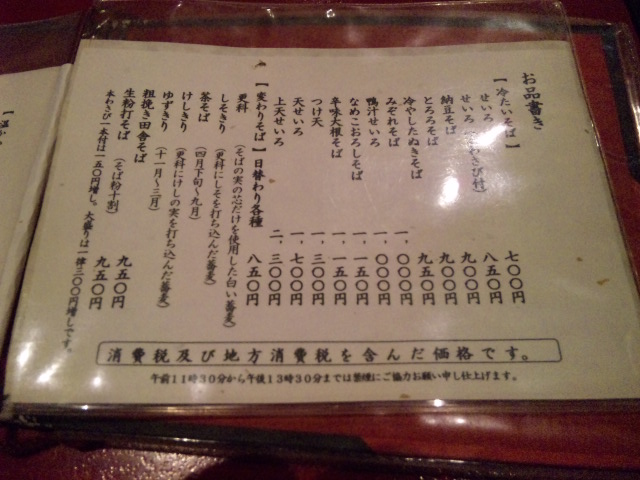 お品書き
【冷たいそば】
せいろ 七〇〇円
せいろ わさび付) 八五〇円
納豆そば 九〇〇円
とろろそば 九五〇円
冷やしたぬきそば 九五〇円
みぞれそば 一、〇〇〇円
鴨汁せいろ 〇〇〇円
なめこおろしそば 一、一五〇円
辛味大根そば 一、一五〇円
つけ天 一、三〇〇円
天せいろ 一、七〇〇円
上天せいろ 二、三〇〇円
【変わりそば】日替わり各種 八五〇円
更科 (そばの実の芯だけを使用した白い蕎麦)
しそきり (更科にしそを打ち込んだ蕎麦)
茶そば (四月下旬~九月)
けしきり (更科にけしの実を打ち込んだ蕎麦)
ゆずきり (十一月~三月)
粗挽き田舎そば 九五〇円
生粉打そば (そば粉十割) 九五〇円
本わさび一本付は一五〇円増し。大盛りは一律三〇〇円増しです。
消費税及び地方消費税を含んだ価格です。
午前11時30分から午後13時30分までは禁煙にご協力お願い申し仕上げます。